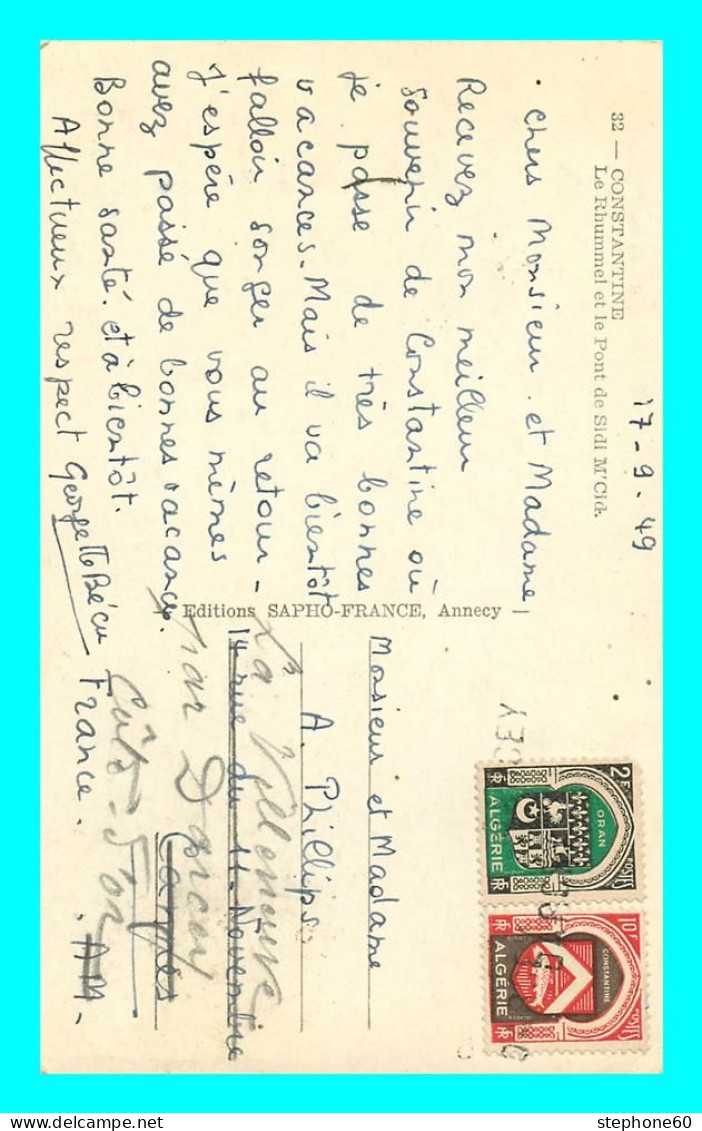 32 — CONSTANTINE
Le Rhummel et le Pont de Sidi M'Cid.
17-9-49
Chers Monsieur et Madame
Recevez mon meilleur
souvenir de Constantine où
je passe de très bonnes
vacances. Mais il va bientôt
falloir songer au retour -
J'espère que vous mêmes
avez passé de bonnes vacances.
Bonne santé. et à bientôt.
Affectueux respect Georgette Bécu
Editions SAPHO-FRANCE, Annecy
Monsieur et Madame
A. Phillips
14 rue du 11 Novembre
La Villeneuve
par Darcey
Cannes
Côte-d'or
A.M.
France.
2F
ORAN
POSTES
RF
ALGÉRIE
RF
10F
CONSTANTINE
POSTES
RF
ALGÉRIE
RF
stephone60